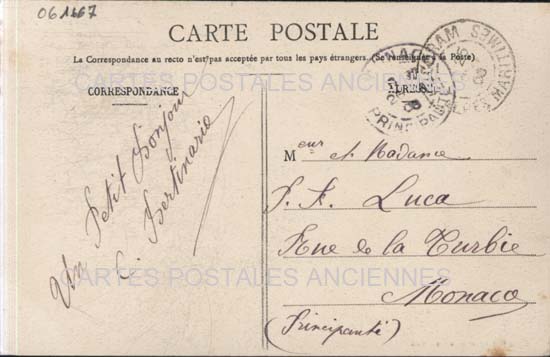 061467
CARTE POSTALE
La Correspondance au recto n'est pas acceptée par tous les pays étrangers. (Se renseigner à la Poste)
CORRESPONDANCE
CARTES POSTALES ANCIENNES
Un Petit Bonjour
M eur et Madame
Luca
Rue de la Turbie
Monaco
(Principauté)
CARTES POSTALES ANCIENNES